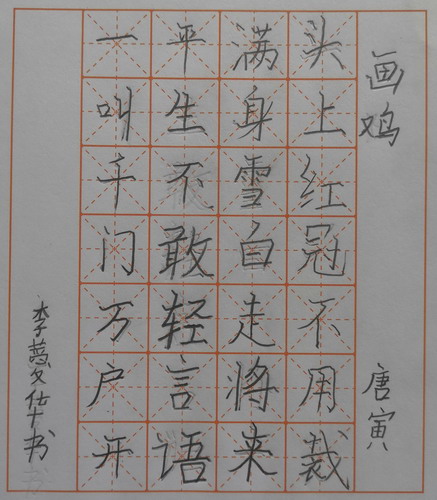 画鸡
唐寅
头上红冠不用裁
满身雪白走将来
平生不敢轻言语
一叫千门万户开
李梦仕书